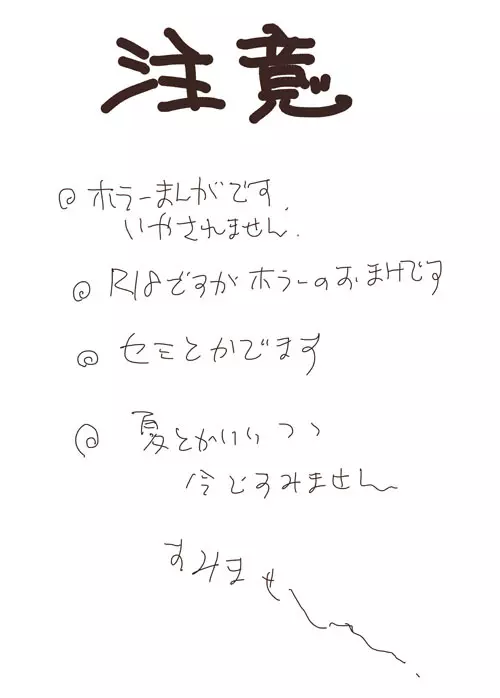 注意
◎ホラーまんがです.
いやされません.
◎R18ですがホラーのおまけです
◎セミとかでます
◎夏とかいいつつ
今ですみません
すみませ